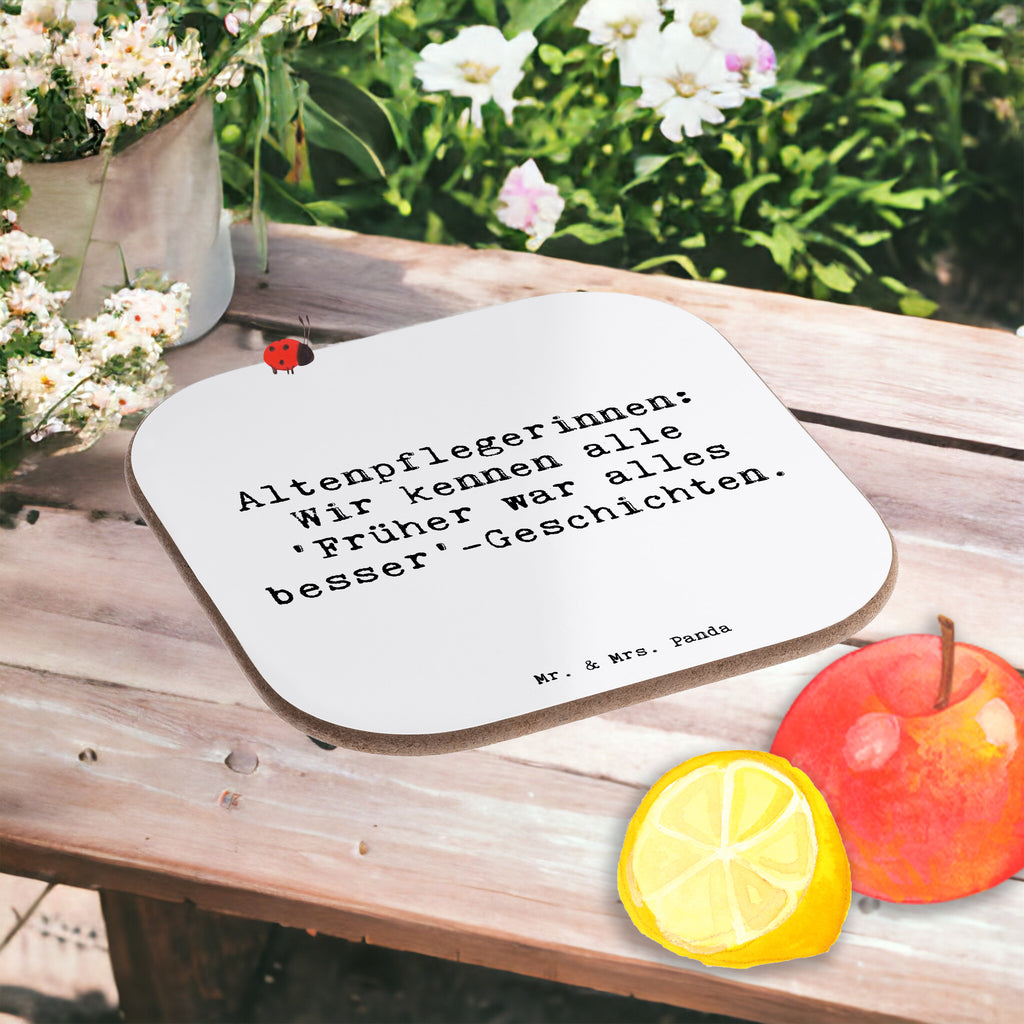 Altenpflegerinnen:
Wir kennen alle
'Früher war alles
besser'-Geschichten.
Mr. & Mrs. Panda